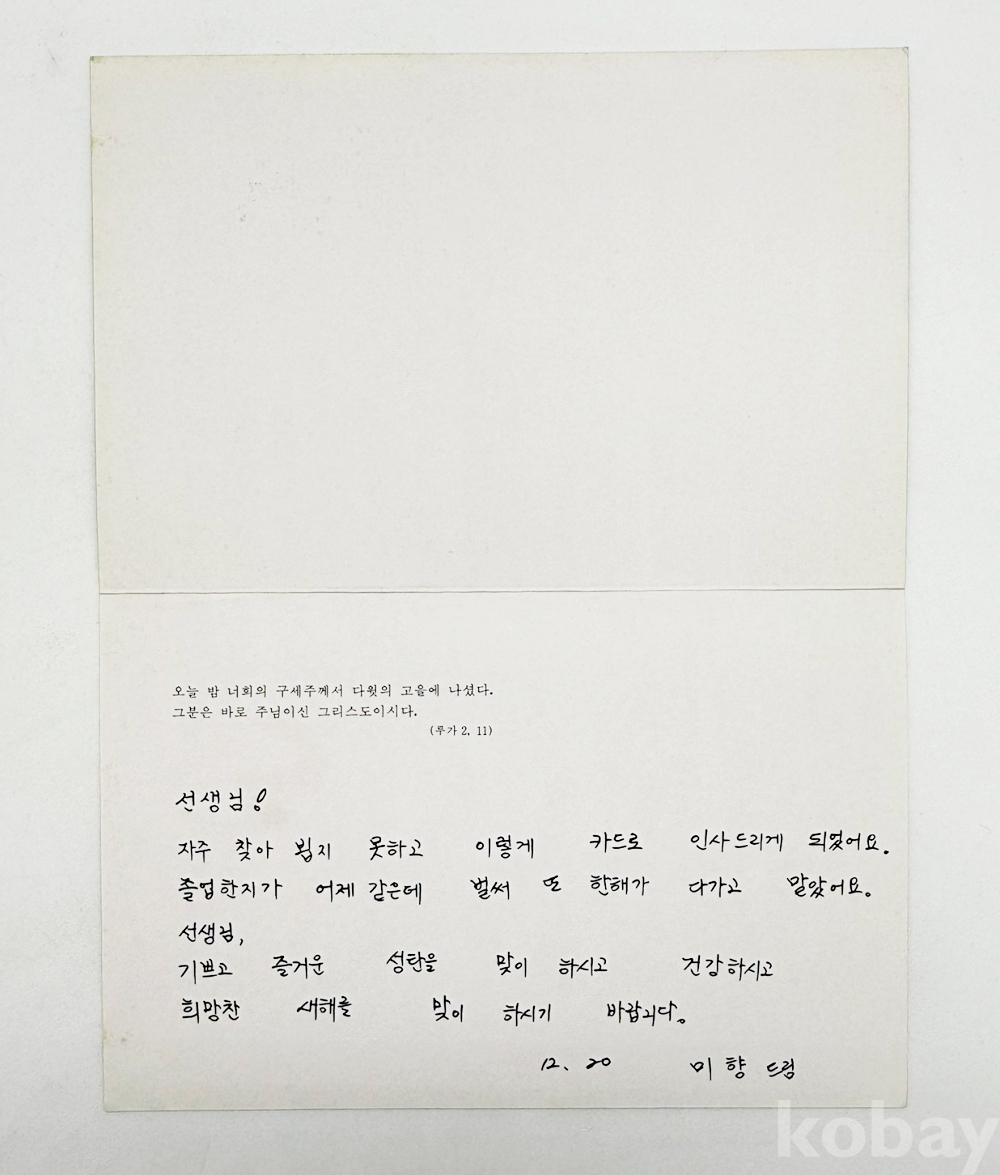 오늘 밤 너희의 구세주께서 다윗의 고을에 나셨다.
그분은 바로 주님이신 그리스도이시다.
(루가 2, 11)
선생님!
자주 찾아 뵙지 못하고 이렇게 카드로 인사드리게 되었어요.
졸업한지가 어제 같은데 벌써 또 한해가 다가고 말았어요.
선생님,
기쁘고 즐거운 성탄을 맞이 하시고 건강하시고
희망찬 새해를 맞이 하시기 바랍니다.
12. 20 미향 드림
kobay